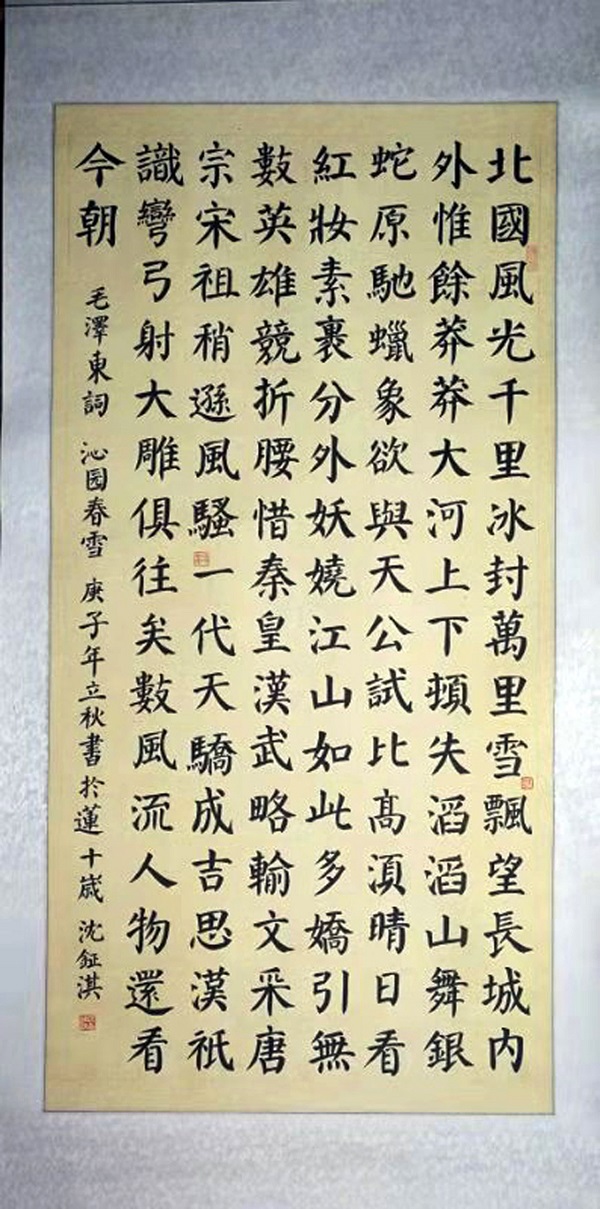 北國風光千里冰封萬里雪飄望長城内
外惟餘莽莽大河上下頓失滔滔山舞銀
蛇原馳蠟象欲與天公試比高湏晴日看
紅妝素裹分外妖嬈江山如此多嬌引無
數英雄競折腰惜秦皇漢武略輸文采唐
宗宋祖稍遜風騷一代天驕成吉思漢祇
識彎弓射大雕俱往矣數風流人物還看
今朝
毛澤東詞 沁园春雪 庚子年立秋書於蓮 十嵗 沈鉦淇